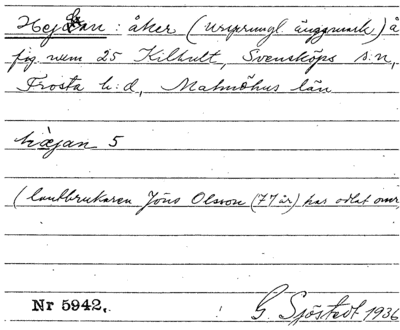 Hejan : åker (ursprungl. ängsmark) å
fig. num 25 Kilhult, Svensköps s:n,
Frosta h:d, Malmöhus län
hæjan 5
(lantbrukaren Jöns Olsson (77 år) har odlat omr.
Nr 5942.
G. Sjöstedt 1936